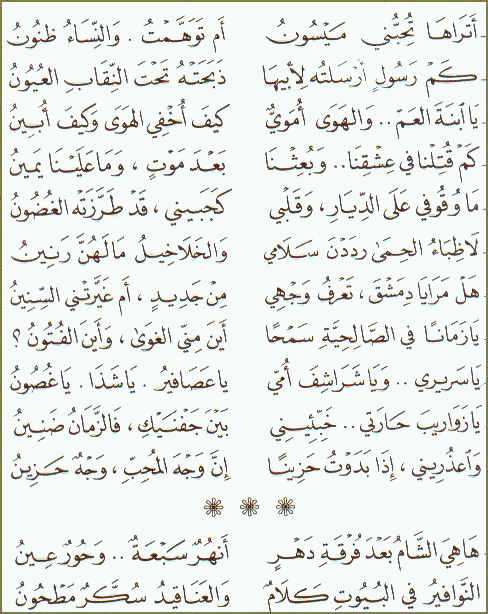 أَتَرَاهَا تُحِبُّني مَيْسُونُ أَم تَوَهَّمْتُ . وَالنِّسَاءُ ظُنُونُ
كَمْ رَسُولٍ أَرْسَلْتُه لِأَبِيهَا ذَبَحَتْهُ تَحْتَ النِّقَابِ العُيُونُ
يا ابْنَةَ العَمّ .. وَالهَوَى أُمَوِيٌّ كيْفَ أُخْفِي الهَوَى وَكيْفَ أُبِينُ
كَمْ قُتِلْنا في عِشْقِنَا .. وَبُعِثْنَا بَعْدَ مَوْتٍ ، وَمَا عَلَيْنَا يَمِينُ
مَا وُقُوفي عَلَى الدِّيَارِ ، وَقَلْبي كجَبِيني ، قَدْ طَرَّزَتْه الغُضُونُ
لَاظِبَاءُ الحِمَىٰ رَدَدْنَ سَلَامي وَالخَلَاخِيلُ مَالَهُنَّ رَنِينُ
هَلْ مَرَايَا دِمَشْقَ ، تَعْرِفُ وَجْهِي مِنْ جَدِيدٍ ، أَم غَيَّرَتْني السِّنِينُ
يَازَمَانًا في الصَّالِحِيَّةِ سَمْحًا أَينَ مِنِّي الغِوَىٰ ، وَأَينَ الفُتُونُ ؟
يَاسَرِيرِي .. وَيَا شَرَاشِفَ أُمِّي يَاعَصَافِيرُ . يَاشَذَا . يَاغُصُونُ
يَازَوَارِيبَ حَارَتي .. خَبِّئِيني بَيْنَ جَفْنَيْكِ ، فَالزَّمَانُ ضَنِينُ
وَاعْذُرِيني ، إِذَا بَدَوْتُ حَزِينًا إِنَّ وَجْهَ المُحِبِّ ، وَجْهٌ حَزِينُ
هَاهِيَ الشَّامُ بَعْدَ فُرْقَةِ دَهْرٍ أَنْهُرٌ سَبْعَةٌ .. وَحُورٌ عِينُ
النَّوَافِيرُ في البُيُوتِ كَلَامٌ وَالعَنَاقِيدُ سُكَّرٌ مَطْحُونُ